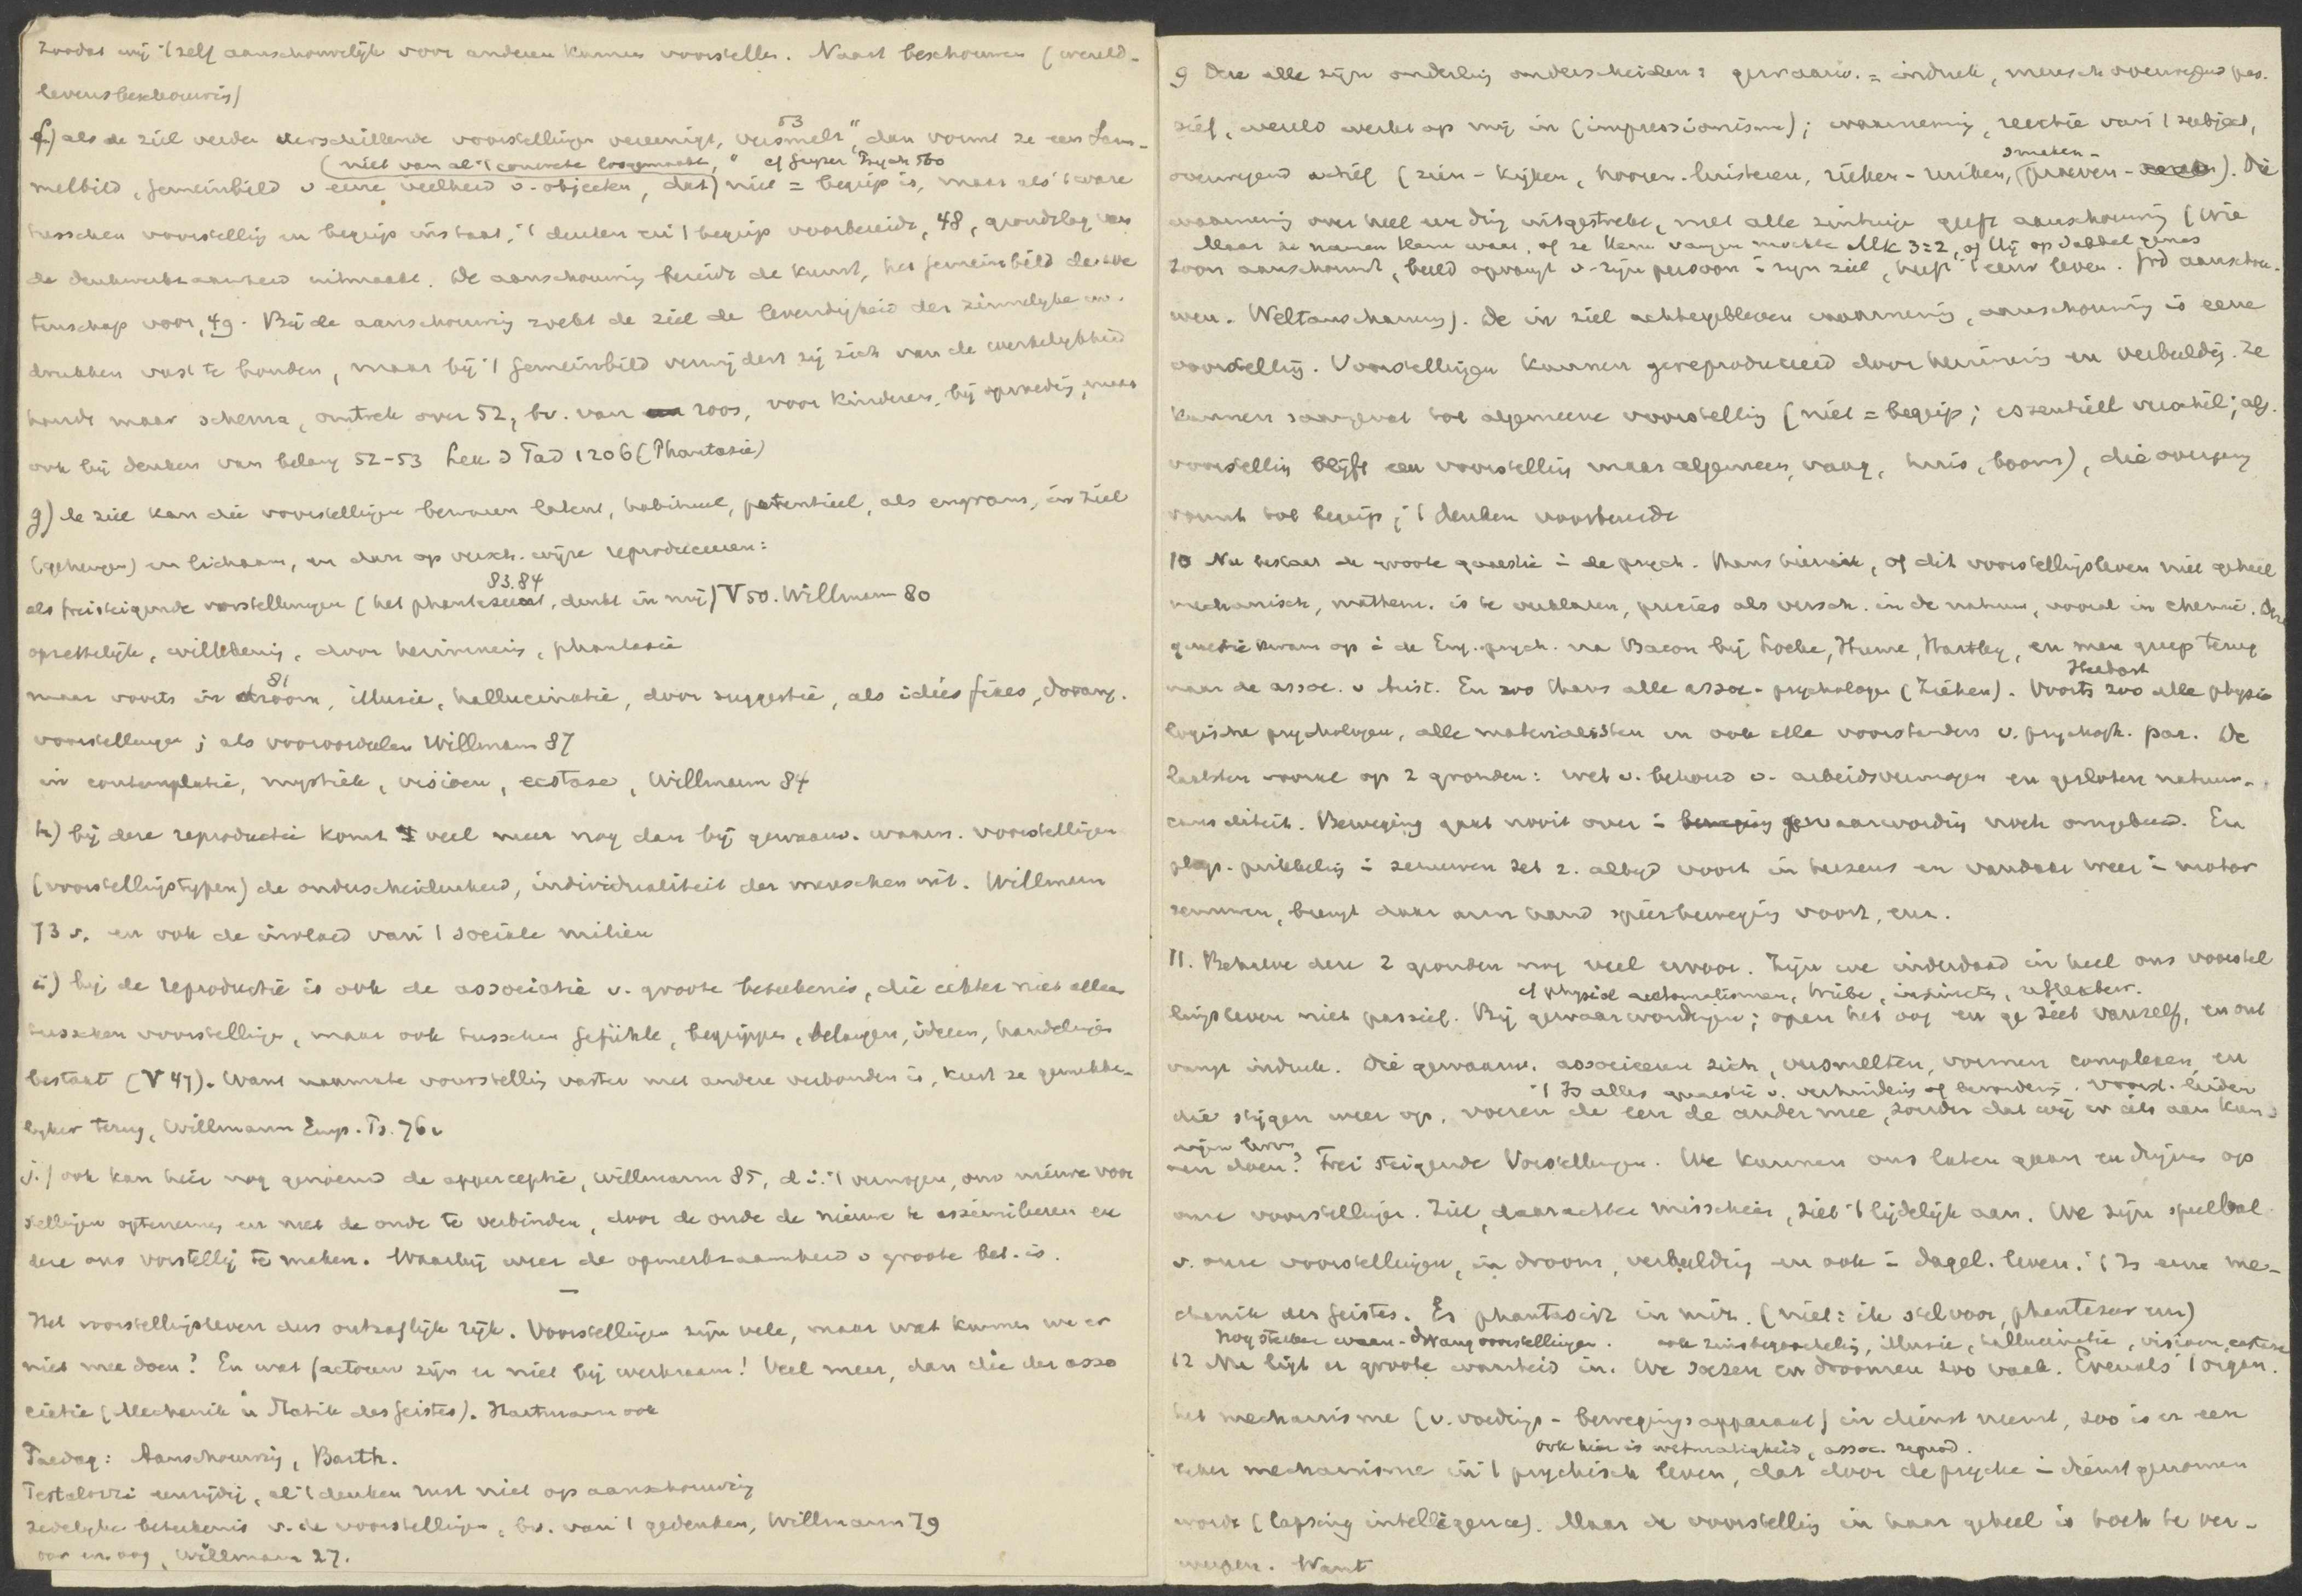 zoodat wij 't zelf aanschouwelijk voor anderen kunnen voorstellen. Naast beschouwen (wereld-
levensbeschouwing)
f) als de ziel verder verschillende voorstellingen vereenigt, versmelt" 53, dan vormt ze een Sam-
(niet van al 't concrete losgemaakt," cf Geyser Psych 560
melbild, Gemeinbild v eene veelheid v. objecten, dat) niet = begrip is, maar als 't ware
tusschen voorstelling en begrip instaat, 't denken en 't begrip voorbereidt, 48, grondslag van
de denkwerkzaamheid uitmaakt. De aanschouwing bereidt de kunst, het Gemeinbild de we
tenschap voor, 49. Bij de aanschouwing zoekt de ziel de levendigheid der zinnelijke in-
drukken vast te houden, maar bij 't Gemeinbild verwijdert zij zich van de werkelijkheid
houdt maar schema, omtrek over 52, bv. van roos, voor kinderen, bij opvoeding, maar
ook bij denken van belang 52-53 Lex. d Päd 1206 (Phantasie)
g) de ziel kan die voorstellingen bewaren latent, habitueel, potentieel, als engram, in ziel
(geheugen) en lichaam, en dan op versch. wijze reproduceeren:
83.84
als freisteigende vorstellungen (het phantaseert, denkt in mij) V 50. Willmann 80
opzettelijk, willekeurig, door herinnering, phantasie
81
maar voorts in droom, illusie, hallucinatie, door suggestie, als idées fixes, dwang-
voorstellingen; als vooroordeelen Willmann 87
in contemplatie, mystiek, visioen, ecstase, Willmann 84
h) bij deze reproductie komt veel meer nog dan bij gewaarw. waarn. voorstellingen
(voorstellingstypen) de onderscheidenheid, individualiteit der menschen uit. Willmann
73 v. en ook de invloed van 't sociale milieu
i) bij de reproductie is ook de associatie v. groote beteekenis, die echter niet alleen
tusschen voorstellingen, maar ook tusschen Gefühle, begrippen, belangen, ideeen, handelingen
bestaat (V 47). Want naarmate voorstelling vaster met andere verbonden is, keert ze gemakke-
lijker terug, Willmann Emp. Ps. 76v
j.) ook kan hier nog genoemd de apperceptie, Willmann 85, d.i. 't vermogen, om nieuwe voor
stellingen optenemen en met de oude te verbinden, door de oude de nieuwe te assimileeren en
deze ons voorstellig te maken. Waarbij weer de opmerkzaamheid v groote bet. is.
—
Het voorstellingsleven dus ontzaglijk rijk. Voorstellingen zijn vele, maar wat kunnen we er
niet mee doen? En wat factoren zijn er niet bij werkzaam! Veel meer, dan die der asso
ciatie (Mechanik u Statik des Geistes). Hartmann ook
Paedag: Aanschouwing, Barth.
Pestalozzi eenzijdig, al 't denken rust niet op aanschouwing
zedelijke beteekenis v. de voorstellingen, bv. van 't gedenken, Willmann 79
oor en oog, Willmann 27.
9 Deze alle zijn onderling onderscheiden: gewaarw. = indruk, mensch overwegend pas-
sief, wereld werkt op mij in (impressionisme); waarneming, reactie van 't subject,
smaken-
overwegend actief (zien - kijken, hooren - luisteren, rieken - ruiken, (proeven - ). Die
waarneming over heel een ding uitgestrekt, met alle zintuigen geeft aanschouwing (Wie
Maar ze namen Hem waar, of ze Hem vangen mochten Mk 3:2, of Hij op Sabbat genas
Zoon aanschouwt, beeld opvangt v. zijn persoon i zijn ziel, heeft 't eeuw leven. God aanschou-
wen. Weltanschauung). De in ziel achtergebleven waarneming, aanschouwing is eene
voorstelling. Voorstellingen kunnen gereproduceerd door herinnering en verbeelding. Ze
kunnen saamgevat tot algemeene voorstelling (niet = begrip; essentiëel verschil; alg.
voorstelling blijft een voorstelling maar algemeen, vaag, huis, boom), die overgang
vormt tot begrip, 't denken voorbereidt
10 Nu bestaat de groote quaestie i de psych. thans hierin, of dit voorstellingsleven niet geheel
mechanisch, mathem. is te verklaren, precies als versch. in de natuur, vooral in chemie. Deze
quaestie kwam op i de Eng. psych. na Bacon bij Locke, Hume, Hartley, en men greep terug
Herbart
naar de assoc. v Arist. En zoo thans alle assoc.-psychologen (Ziehen). Voorts zoo alle physio
logische psychologen, alle materialisten en ook alle voorstanders v. psychoph. par. De
laatsten vooral op 2 gronden: wet v. behoud v. arbeidsvermogen en gesloten natuur-
causaliteit. Beweging gaat nooit over i gewaarwording noch omgekeerd. Een
phys. prikkeling i zenuwen zet z. altijd voort in hersens en vandaar weer i motor
zenuwen, brengt daar arm hand spierbeweging voort, enz.
11. Behalve deze 2 gronden nog veel ervoor. Zijn we inderdaad in heel ons voorstel
cf physiol automatismen, Triebe, instincts, reflexbew.
lingsleven niet passief. Bij gewaarwordingen; open het oog en ge ziet vanzelf, en oor
vangt indruk. Die gewaarw. associeeren zich, versmelten, vormen complexen, en
't Is alles quaestie v. verhindering of bevordering. Voorst. leiden
die stijgen weer op, voeren de een de ander mee, zonder dat wij er iets aan kun-
eigen leven
nen doen? Frei steigende Vorstellungen. We kunnen ons laten gaan en drijven op
onze voorstellingen. Ziel, daarachter misschien, ziet 't lijdelijk aan. We zijn speelbal
v. onze voorstellingen, in droom, verbeelding en ook i dagel. leven. 't Is eene me-
chanik des Geistes. Es phantasirt in mir. (niet: ik stel voor, phantaseer enz)
Nog sterker waan-dwangvoorstellingen. ook zinsbegoocheling, illusie, hallucinatie, visioen, ecstase
12 Nu ligt er groote waarheid in. We soezen en droomen zoo vaak. Evenals 't organ.
het mechanisme (v. voedings - bewegingsapparaat) in dienst neemt, zoo is er een
ook hier is wetmatigheid, assoc. reprod.
zeker mechanisme in 't psychisch leven, dat door de psyche i dienst genomen
wordt (lapsing intelligence). Maar de voorstelling in haar geheel is toch te ver-
werpen. Want